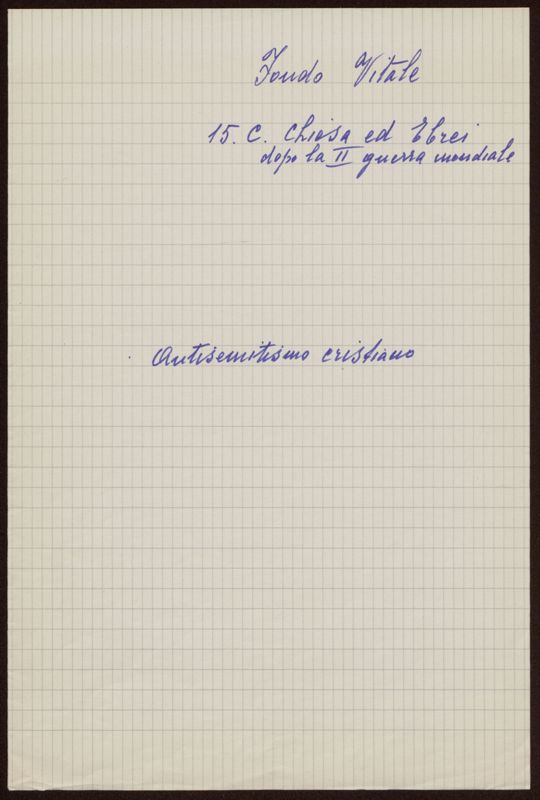 Fondo Vitale
15. C. Chiesa ed Ebrei
dopo la II guerra mondiale
Antisemitismo cristiano